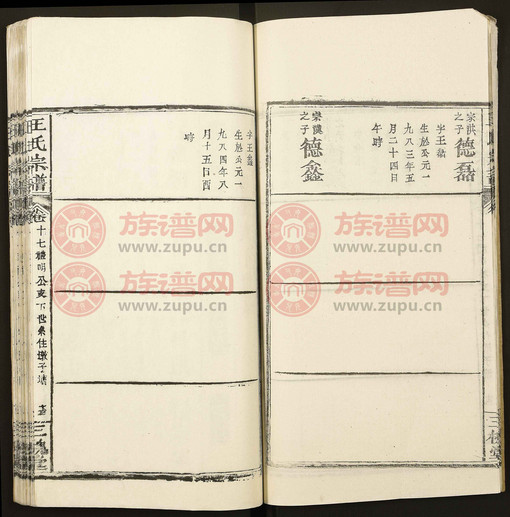 宗洪之子 德磊
字王磊
生於公元一
九八三年五
月二十四日
午時
宗漢之子 德鑫
字王鑫
生於公元一
九八四年八
月十五日酉
時
王氏宗譜
卷十七
公支下世系住墩子塘
三槐堂
族谱网
www.zupu.cn
族谱网
www.zupu.cn
族谱网
www.zupu.cn
族谱网
www.zupu.cn